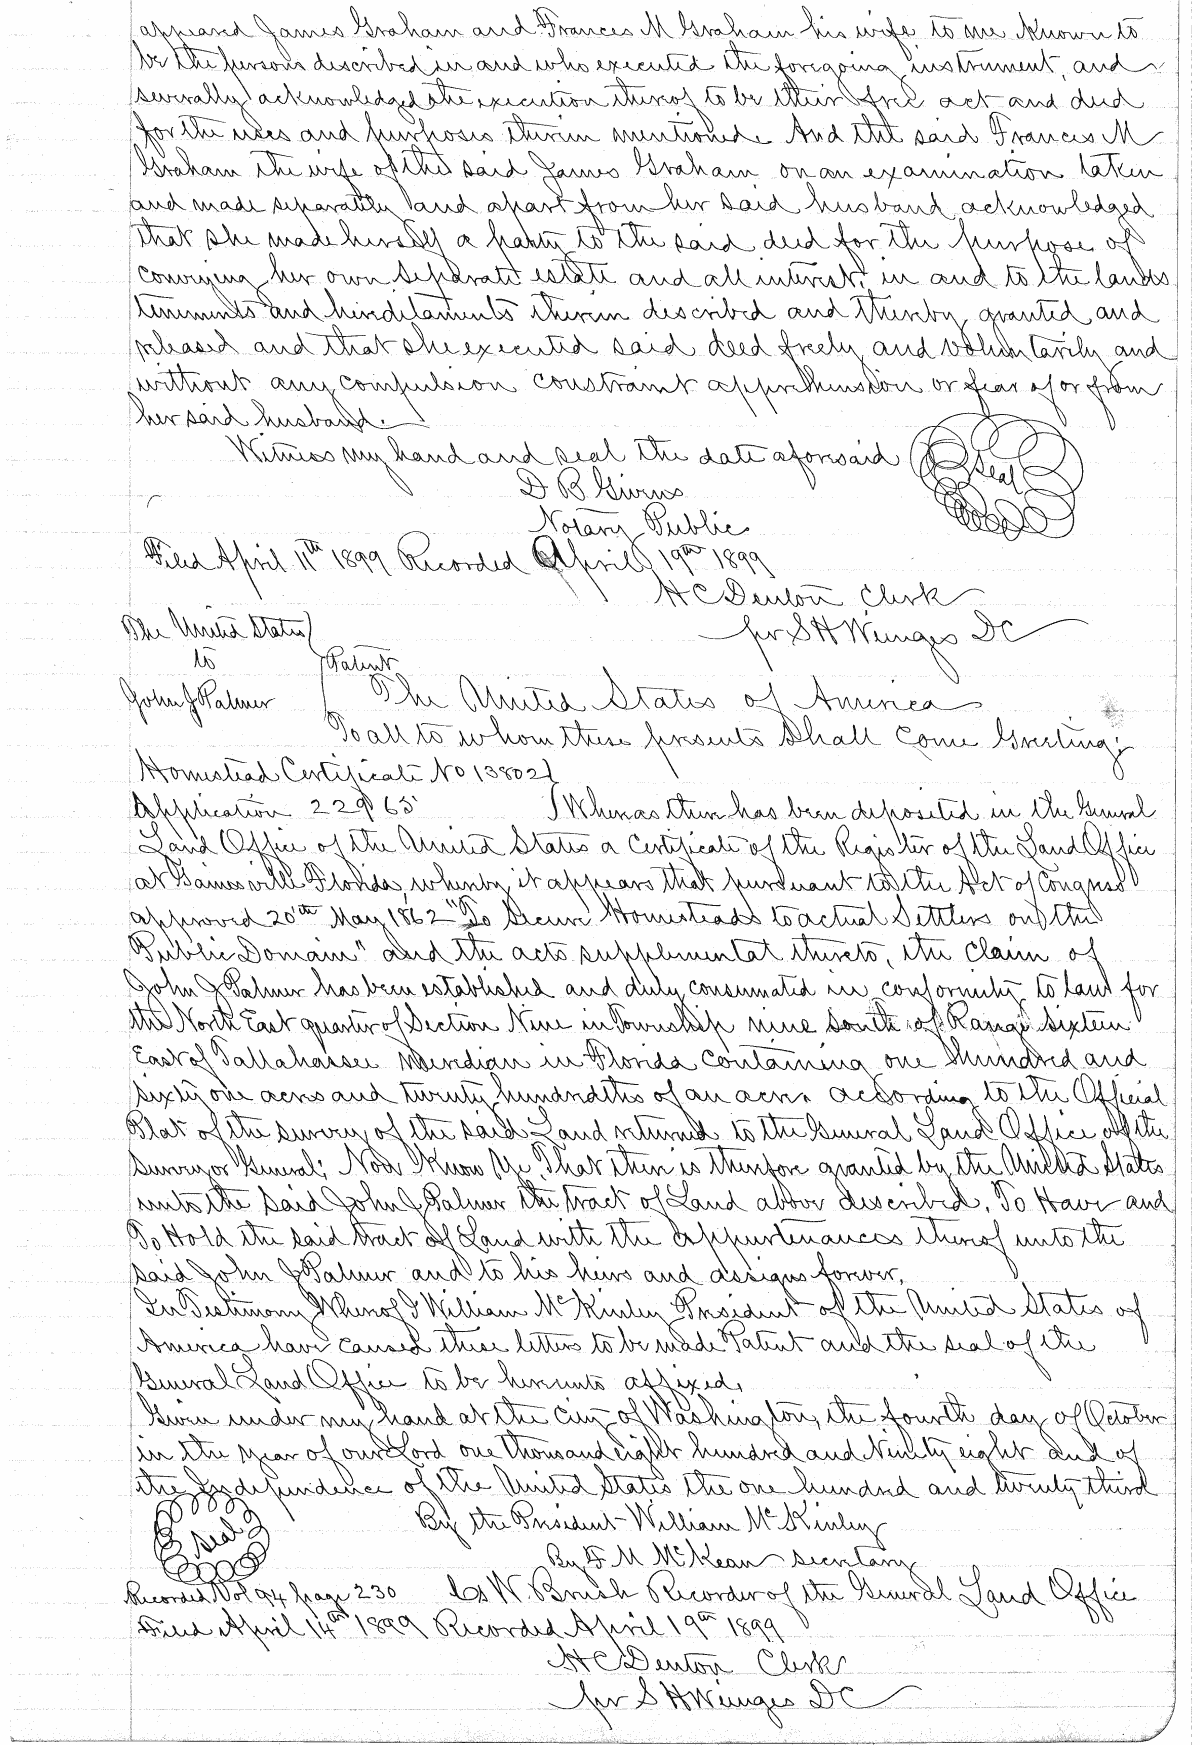 appeared James Graham and Frances M Graham his wife to me known to
be the persons described in and who executed the foregoing instrument, and
severally acknowledged the execution thereof to be their free act and deed
for the uses and purposes therein mentioned. And the said Frances M
Graham the wife of the said James Graham on an examination taken
and made separately and apart from her said husband acknowledged
that she made herself a party to the said deed for the purpose of
conveying her own separate estate and all interest, in and to the lands
tenements and hereditaments therein described and thereby granted and
released and that she executed said deed freely and voluntarily and
without any compulsion constraint apprehension or fear of or from
her said husband.
Witness my hand and seal the date aforesaid
Seal
D B Givens
Notary Public
Filed April 11th 1899 Recorded April 19th 1899
H C Denton Clerk
pr S H Wienges DC
The United States
to Patent
John J Palmer The United States of America
To all to whom these presents shall come Greeting;
Homestead Certificate No 13802
Application 22965 Whereas there has been deposited in the General
Land Office of the United States a Certificate of the Register of the Land Office
at Gainesville Florida, whereby it appears that pursuant to the Act of Congress
approved 20th May 1862 "To Secure Homesteads to actual Settlers on the
Public Domain" and the acts supplemental thereto, the claim of
John J Palmer has been established and duly consumated in conformity to law for
the North East quarter of Section Nine in Township nine South of Range sixteen
East of Tallahassee Meridian in Florida containing one hundred and
sixty one acres and twenty hundredths of an acre according to the Official
Plat of the survey of the said Land returned to the General Land Office of the
Surveyor General; Now Know Ye That there is therefore granted by the United States
unto the said John J Palmer the tract of Land above described, To Have and
To Hold the said tract of Land with the appurtenances thereof unto the
said John J Palmer and to his heirs and assigns forever,
In Testimony Whereof I William McKinley President of the United States of
America have caused these letters to be made Patent and the seal of the
General Land Office to be hereunto affixed,
Given under my hand at the city of Washington, the fourth day of October
in the year of our Lord one thousand eight hundred and Ninety eight and of
the Independence of the United States the one hundred and twenty third
Seal
By the President William McKinley
By F M McKean secretary
Recorded Vol 94 page 230 C W Brush Recorder of the General Land Office
Filed April 14th 1899 Recorded April 19th 1899
H C Denton Clerk
pr S H Wienges DC